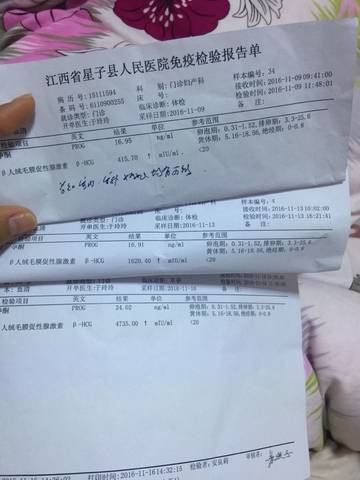 江西省星子县人民医院免疫检验报告单
病 历 号：15111594 科 别：门诊妇产科 样本编号：34
条 码 号：6110900255 床 号： 接收时间：2016-11-09 09:41:00
就诊类型：门诊 临床诊断：体检 2016-11-09 11:48:01
开单医生：于玲玲 采样日期：2016-11-09 备 注：
检验项目 英文 结果 单位 参考范围
孕酮 PROG 16.95 ng/ml 卵泡期：0.31-1.52，排卵期：3.3-25.6
黄体期：5.16-18.56，绝经期：0-0.8
β人绒毛膜促性腺激素 β-HCG 415.70 ↑ mIU/ml <20
就诊类型：门诊 床 号： 样本编号：4
开单医生：于玲玲 临床诊断：体检 接收时间：2016-11-13 10:02:00
采样日期：2016-11-13 2016-11-13 16:21:41
备 注：
检验项目 英文 结果 单位 参考范围
PROG 16.91 ng/ml 卵泡期：0.31-1.52，排卵期：3.3-25.6
黄体期：5.16-18.56，绝经期：0-0.8
人绒毛膜促性腺激素 β-HCG 1620.40 ↑ mIU/ml <20
开单医生：于玲玲 采样日期：2016-11-16 备 注：
检验项目 英文 结果 单位 参考范围
孕酮 PROG 24.02 ng/ml 卵泡期：0.31-1.52，排卵期：3.3-25.6
黄体期：5.16-18.56，绝经期：0-0.8
人绒毛膜促性腺激素 β-HCG 4735.00 ↑ mIU/ml <20
打印时间：2016-11-16 14:32:15 检验者：安良莉 审核者：